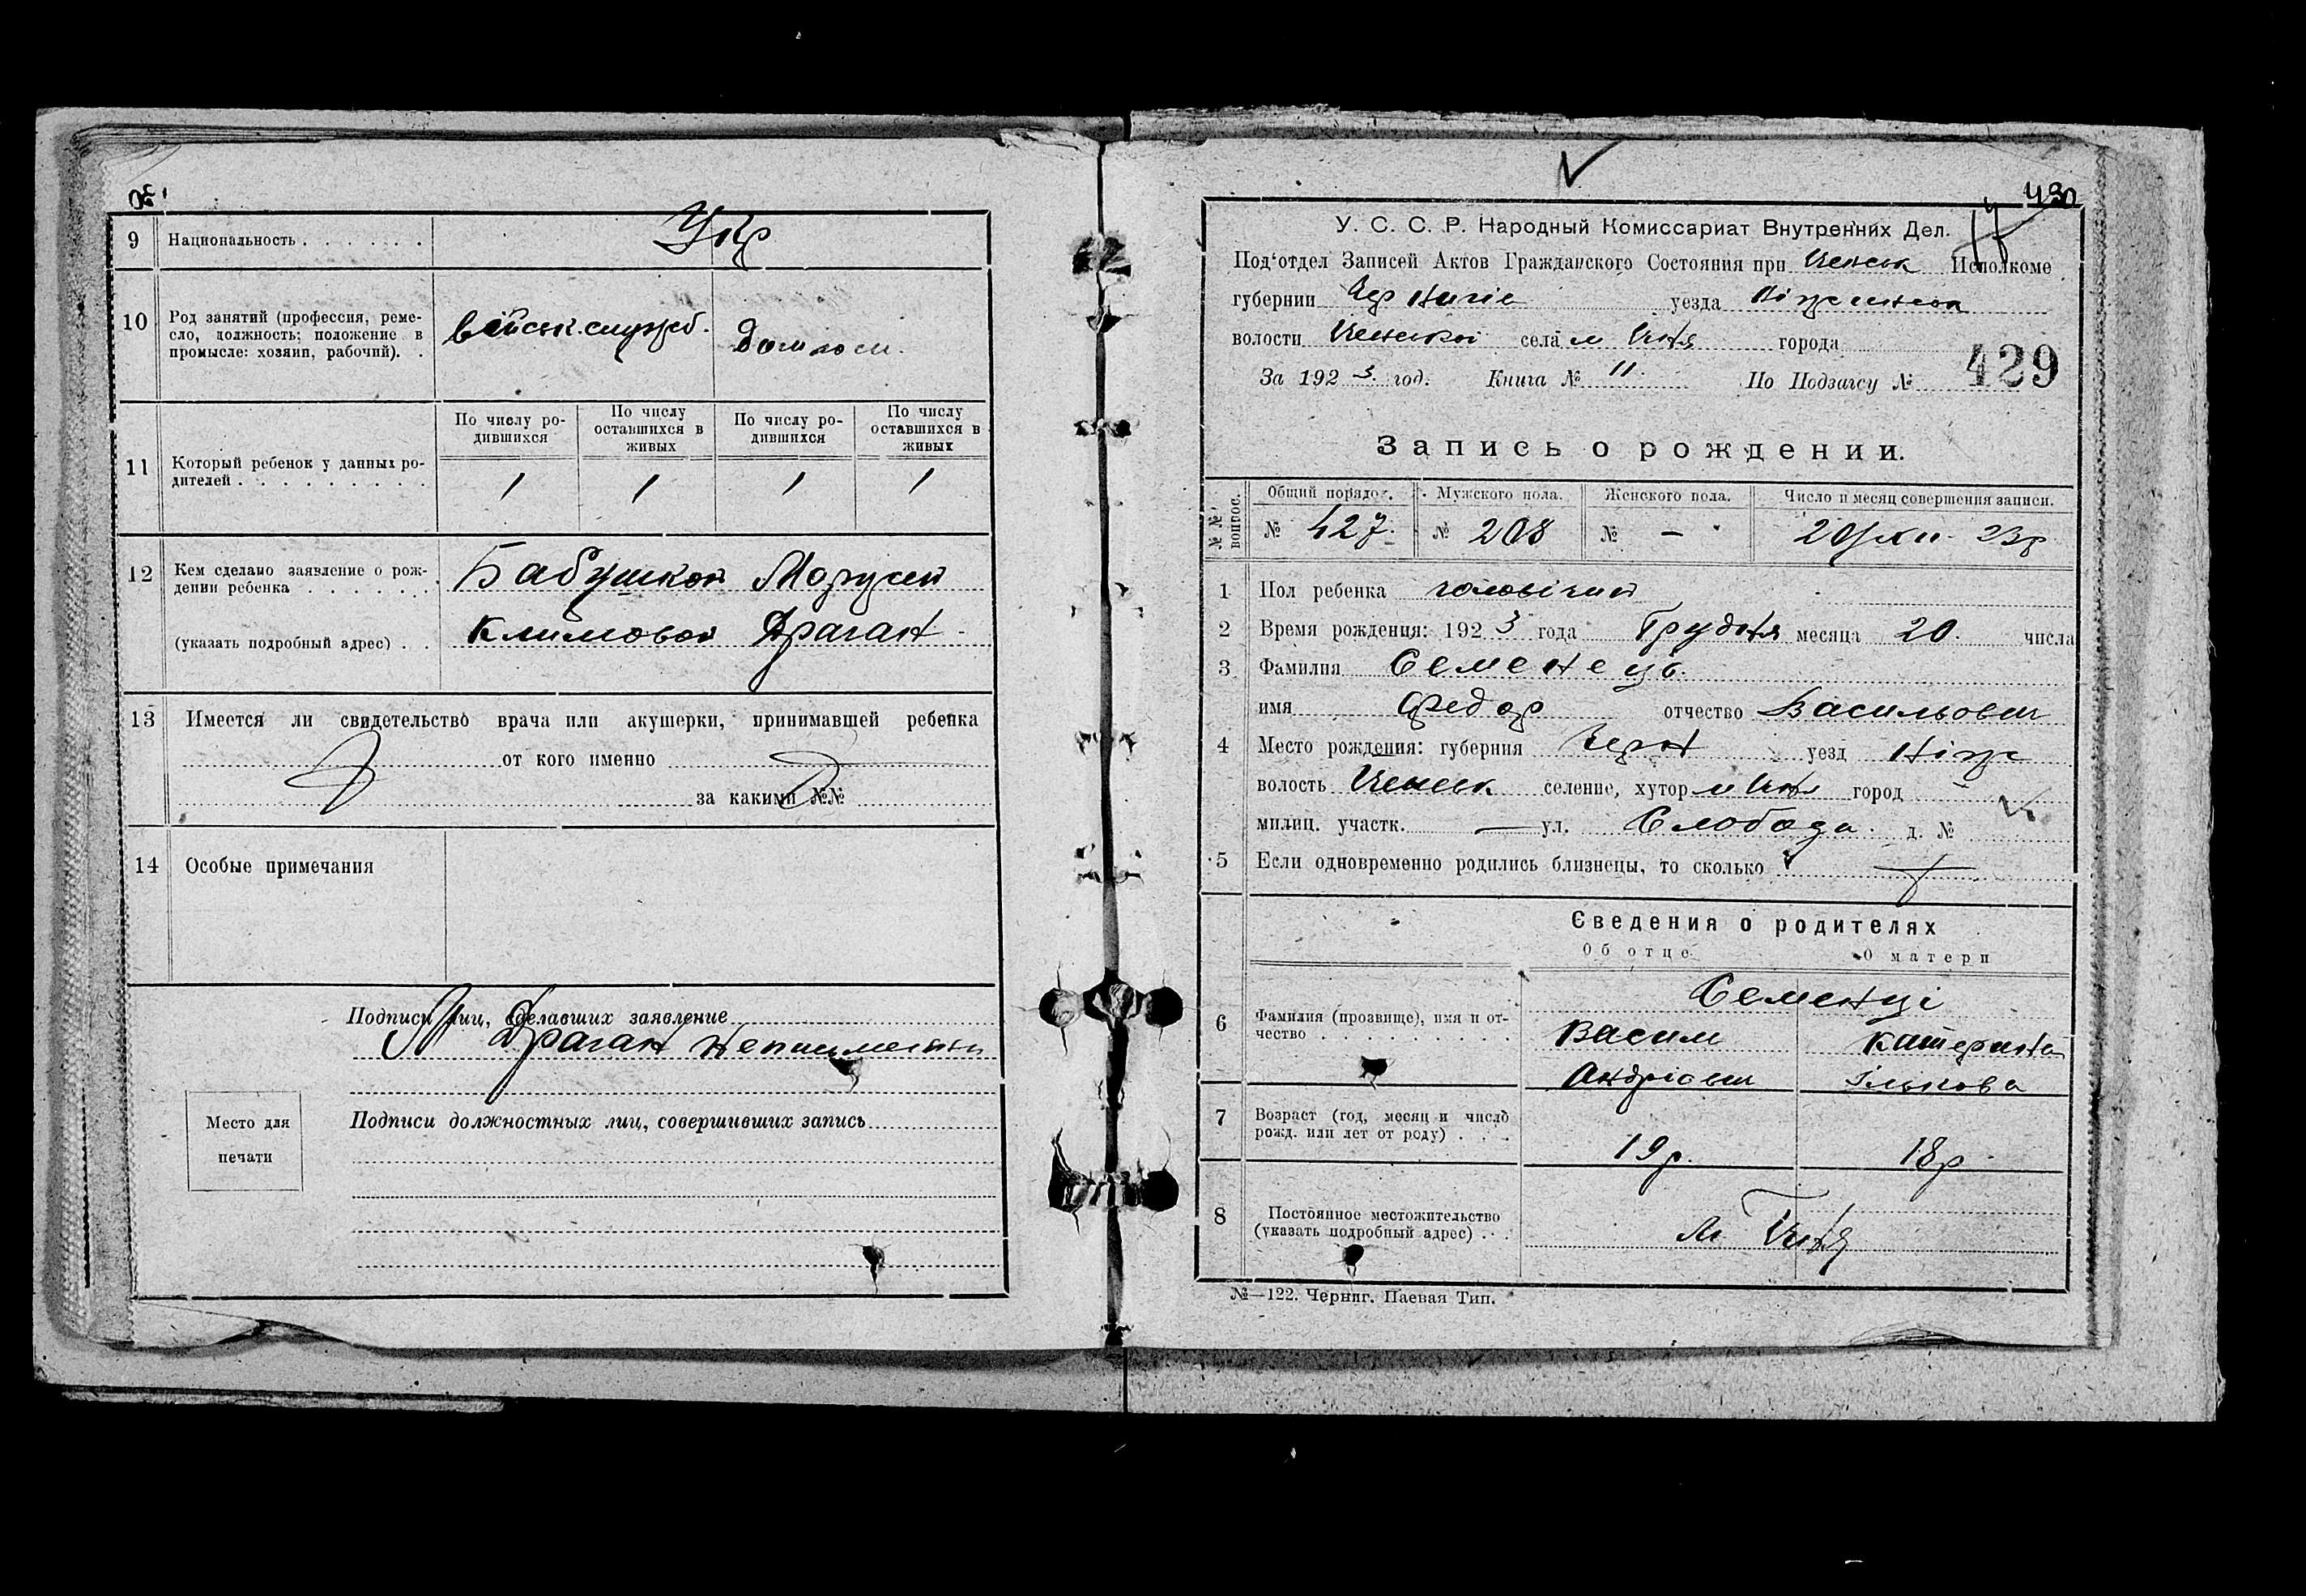 9 Национальность . . . . . . Укр
10 Род занятий (профессия, реме-
сло, должность; положение в
промысле: хозяин, рабочий). .
військ. служб. Домгосп.
По числу ро-
дившихся
По числу
оставшихся в
живых
По числу ро-
дившихся
По числу
оставшихся в
живых
11 Который ребенок у данных ро-
дителей . . . . . . . . .
1 1 1 1
12 Кем сделано заявление о рож-
дении ребенка . . . . . . .
(указать подробный адрес) . .
Бабушкой Марусей
Климовой Драган
13 Имеется ли свидетельство врача или акушерки, принимавшей ребенка
от кого именно
за какими №№
14 Особые примечания
Подписи лиц, сделавших заявление
Драган неписьменн
Место для
печати
Подписи должностных лиц, совершивших запись
430
У. С. С. Р. Народный Комиссариат Внутренних Дел.
Под'отдел Записей Актов Гражданского Состояния при Иченськ Исполкоме
губернии Чернигів уезда Ніженськ
волости Иченської села м Ичня города
За 1923 год. Книга № 11. По Подзагсу № 429
Запись о рождении.
№№ вопрос.
Общий порядок. Мужского пола. Женского пола. Число и месяц совершения записи.
№ 427. № 208 № — 20/XII- 23р
1 Пол ребенка чоловічий
2 Время рождения: 1923 года Грудня месяца 20. числа
3 Фамилия Семенець.
имя Федор отчество Васильович
4 Место рождения: губерния Черн уезд Ніж
волость Иченськ селение, хутор м Ичн город
милиц. участк. — ул. Слобода. д. №
5 Если одновременно родились близнецы, то сколько
Сведения о родителях
Об отце О матери
6 Фамилия (прозвище), имя и от-
чество . . . . . . . . .
Семенці
Васил Катерина
Андріович Ількова
7 Возраст (год, месяц и число
рожд. или лет от роду) . . .
19р. 18р
8 Постоянное местожительство
(указать подробный адрес) . . .
м Ичня
№—122. Черниг. Паевая Тип.